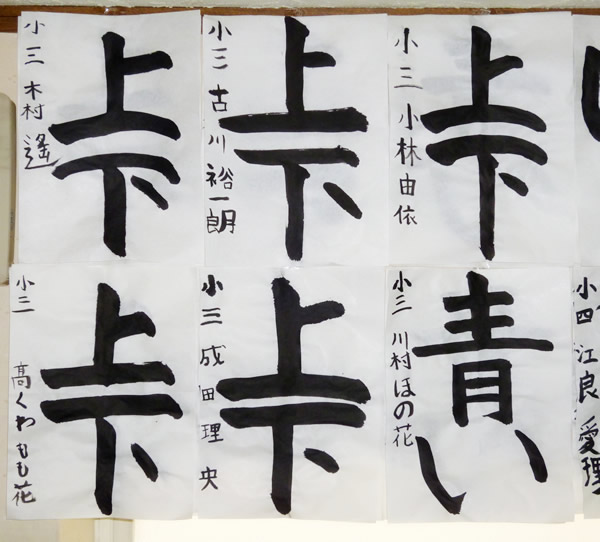 上下
小三 木村 遥
上下
小三 古川 裕一朗
上下
小三 小林由依
上下
小二 高くわもも花
上下
小三 成田理央
青い
小三 川村ほの花
小四 江良 愛理